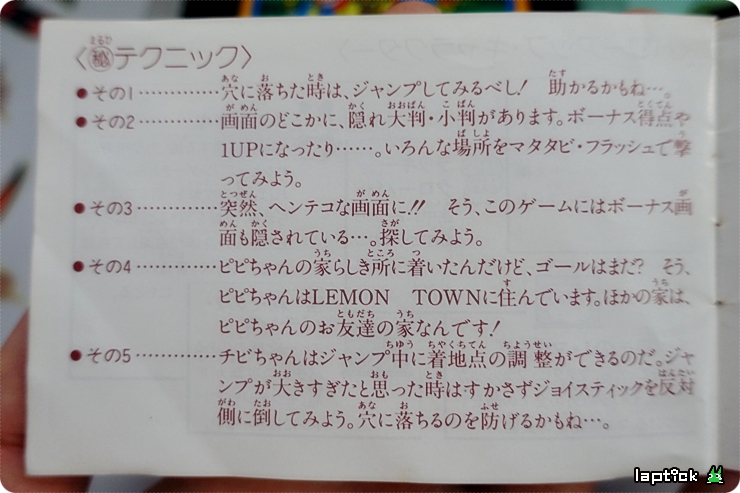 〈㊙テクニック〉
●その1…………穴に落ちた時は、ジャンプしてみるべし！　助かるかもね…。
●その2…………画面のどこかに、隠れ大判・小判があります。ボーナス得点や
1UPになったり……。いろんな場所をマタタビ・フラッシュで撃
ってみよう。
●その3…………突然、ヘンテコな画面に!!　そう、このゲームにはボーナス画
面も隠されている…。探してみよう。
●その4…………ピピちゃんの家らしき所に着いたんだけど、ゴールはまだ？　そう、
ピピちゃんはLEMON　TOWNに住んでいます。ほかの家は、
ピピちゃんのお友達の家なんです！
●その5…………チビちゃんはジャンプ中に着地点の調整ができるのだ。ジャ
ンプが大きすぎたと思った時はすかさずジョイスティックを反対
側に倒してみよう。穴に落ちるのを防げるかもね…。
laptick